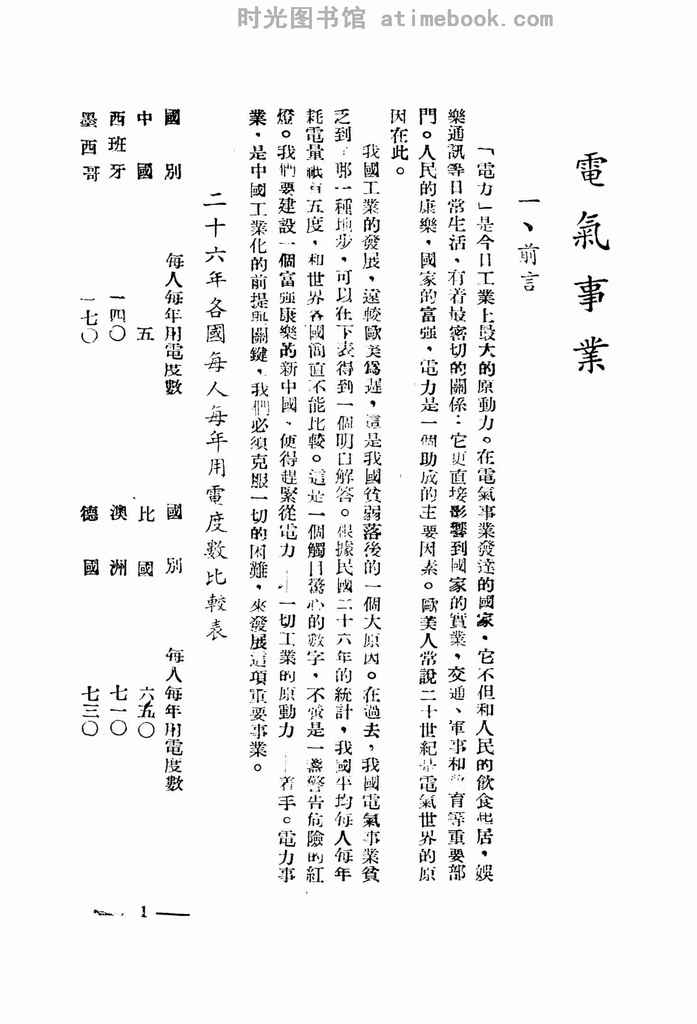 时光图书馆 atimebook.com
電氣事業
一、前言
「電力」是今日工業上最大的原動力。在電氣事業發達的國家，它不但和人民的飲食起居，娛
樂通訊等日常生活，有着最密切的關係：它更直接影響到國家的實業，交通、軍事和教育等重要部
門。人民的康樂，國家的富强，電力是一個助成的主要因素。歐美人常說二十世紀是電氣世界的原
因在此。
我國工業的發展，遠較歐美爲遲，這是我國貧弱落後的一個大原因。在過去，我國電氣事業貧
乏到了哪一種地步，可以在下表得到一個明白解答。根據民國二十六年的統計，我國平均每人每年
耗電量祇有五度，和世界各國簡直不能比較。這是一個觸目驚心的數字，不啻是一盞警告危險的紅
燈。我們要建設一個富强康樂的新中國、便得趕緊從電力——一切工業的原動力——着手。電力事
業，是中國工業化的前提與關鍵，我們必須克服一切的困難，來發展這項重要事業。
二十六年各國每人每年用電度數比較表
國別 每人每年用電度數 國別 每人每年用電度數
中國 五 比國 六五〇
西班牙 一四〇 澳洲 七一〇
墨西哥 一七〇 德國 七三〇
1